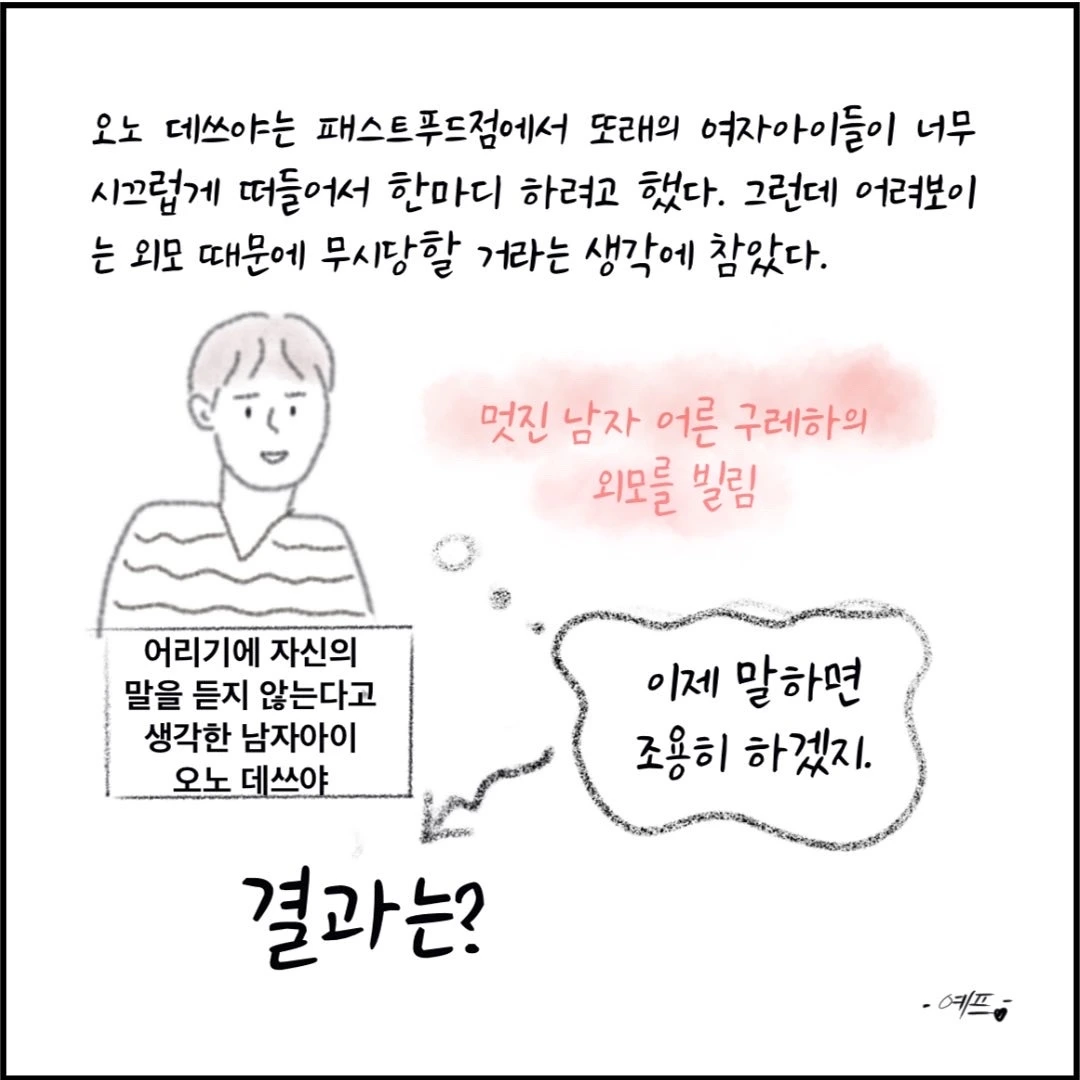 오노 데쓰야는 패스트푸드점에서 또래의 여자아이들이 너무
시끄럽게 떠들어서 한마디 하려고 했다. 그런데 어려보이
는 외모 때문에 무시당할 거라는 생각에 참았다.
멋진 남자 어른 구레하의
외모를 빌림
어리기에 자신의
말을 듣지 않는다고
생각한 남자아이
오노 데쓰야
이제 말하면
조용히 하겠지.
결과는?
-예프-